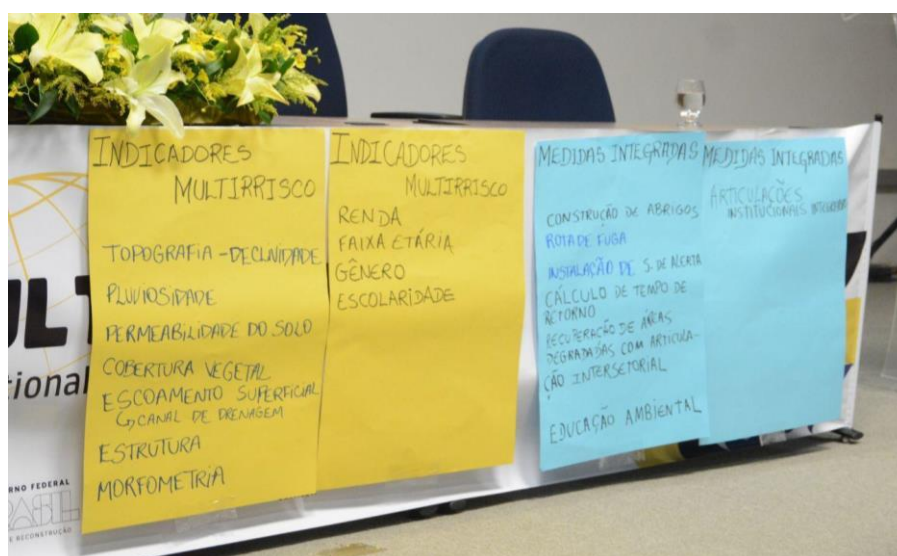 INDICADORES
MULTIRRISCO
TOPOGRAFIA - DECLIVIDADE
PLUVIOSIDADE
PERMEABILIDADE DO SOLO
COBERTURA VEGETAL
ESCOAMENTO SUPERFICIAL
↳ CANAL DE DRENAGEM
ESTRUTURA
MORFOMETRIA
INDICADORES
MULTIRRISCO
RENDA
FAIXA ETÁRIA
GÊNERO
ESCOLARIDADE
MEDIDAS INTEGRADAS
CONSTRUÇÃO DE ABRIGOS
ROTA DE FUGA
INSTALAÇÃO DE S. DE ALERTA
CÁLCULO DE TEMPO DE
RETORNO
RECUPERAÇÃO DE ÁREAS
DEGRADADAS COM ARTICULA-
ÇÃO INTERSETORIAL
EDUCAÇÃO AMBIENTAL
MEDIDAS INTEGRADAS
ARTICULAÇÕES
INSTITUCIONAIS
ULT
cional
RNO FEDERAL
RASIL
E RECONSTRUÇÃO